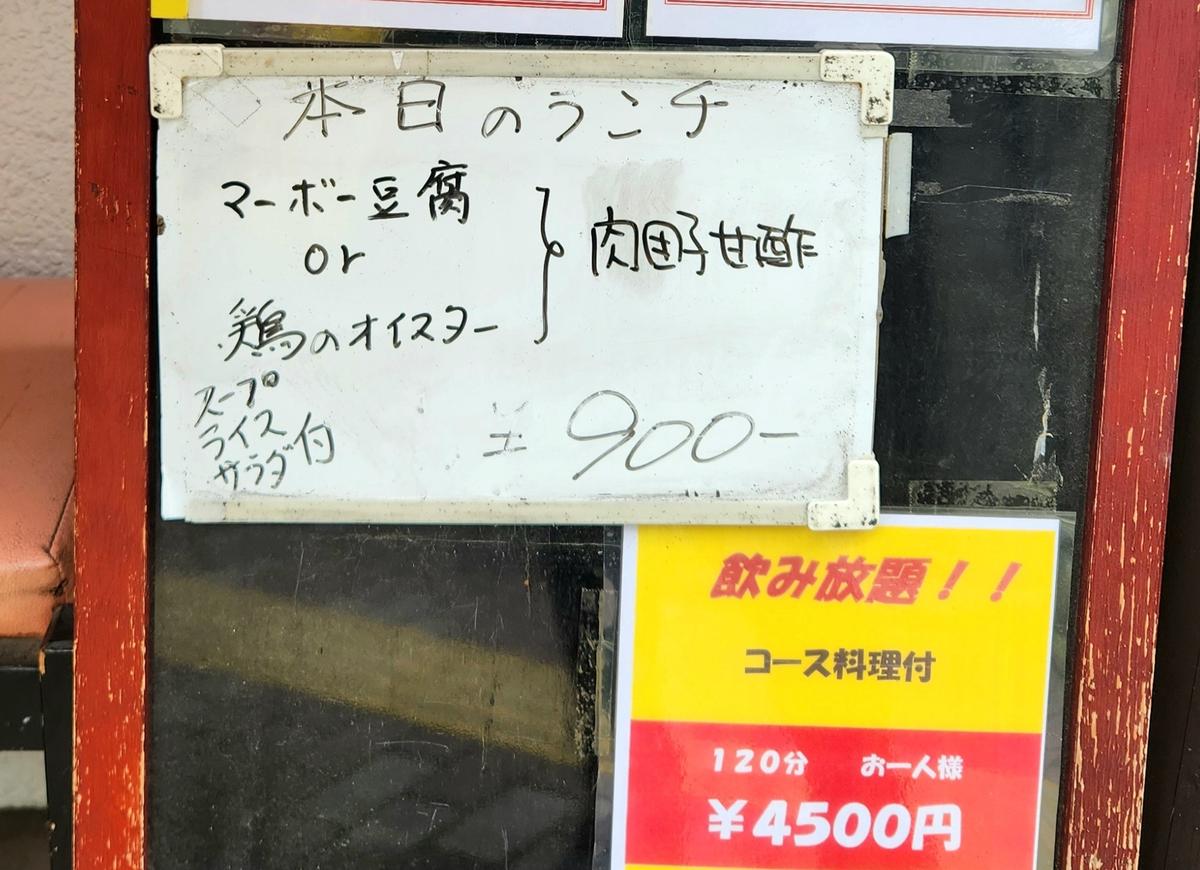 本日のランチ
マーボー豆腐
or
鶏のオイスター
肉団子甘酢
スープ
ライス
サラダ付
¥900-
飲み放題！！
コース料理付
120分 お一人様
¥4500円